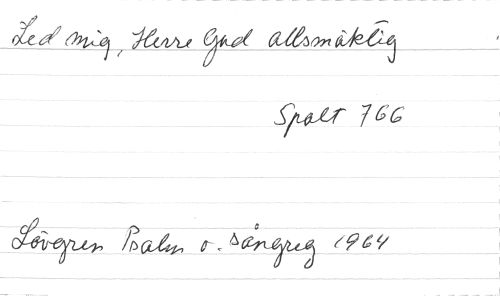 Led mig, Herre Gud allsmäktig
Spalt 766
Lövgren Psalm o. sångreg 1964